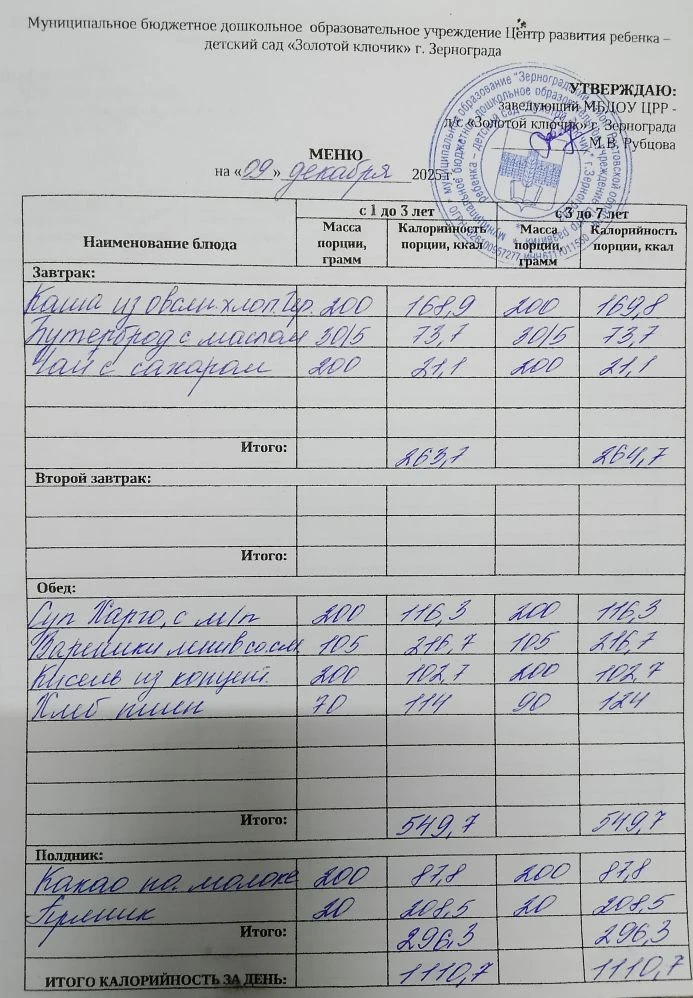 Муниципальное бюджетное дошкольное образовательное учреждение Центр развития ребенка –
детский сад «Золотой ключик» г. Зернограда
УТВЕРЖДАЮ:
заведующий МБДОУ ЦРР -
д/с «Золотой ключик» г. Зернограда
М.В. Рубцова
МЕНЮ
на «09» декабря 2025 г.
Наименование блюда с 1 до 3 лет с 3 до 7 лет
Масса порции, грамм Калорийность порции, ккал Масса порции, грамм Калорийность порции, ккал
Завтрак:
Каша из овсян. хлоп. Гер. 200 168,9 200 169,8
Бутерброд с маслом 30/5 73,7 30/5 73,7
Чай с сахаром 200 21,1 200 21,1
Итого: 263,7 264,7
Второй завтрак:
Итого:
Обед:
Суп Харчо, с м/п 200 116,3 200 116,3
Вареники 105 216,7 105 216,7
Кисель из концент. 200 102,7 200 102,7
Хлеб пшен 70 114 90 124
Итого: 549,7 549,7
Полдник:
Какао на молоке 200 87,8 200 87,8
Пряник 20 208,5 20 208,5
Итого: 296,3 296,3
ИТОГО КАЛОРИЙНОСТЬ ЗА ДЕНЬ: 1110,7 1110,7